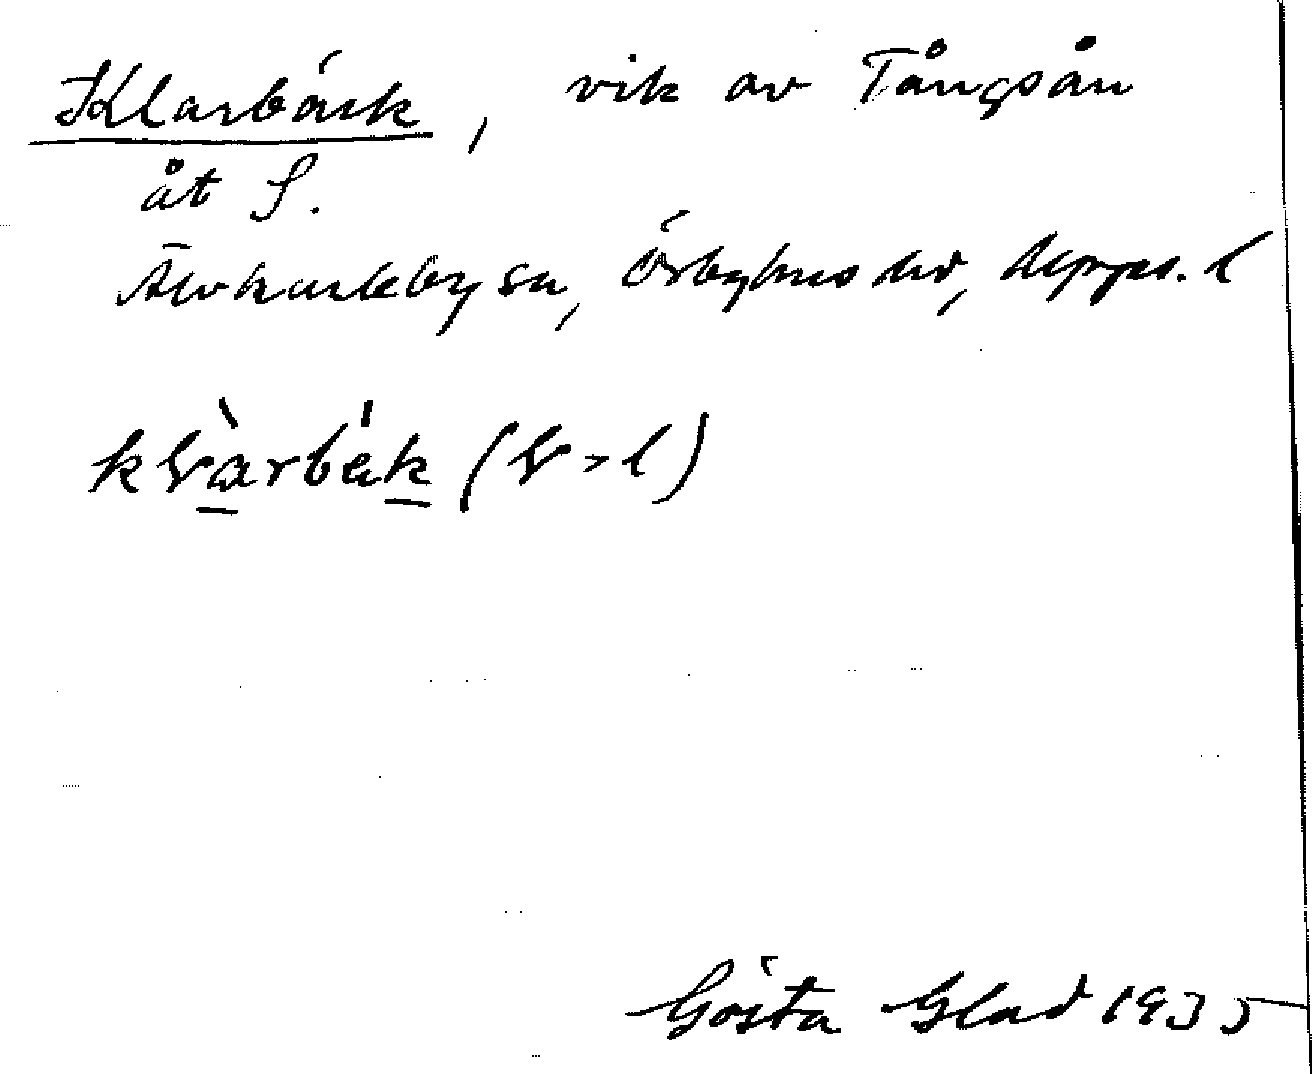 Klarbäck, vik av Tångsån
åt S.
Älvkarleby sn, Örbyhus hd, Upps. l
Gösta Glad 1935